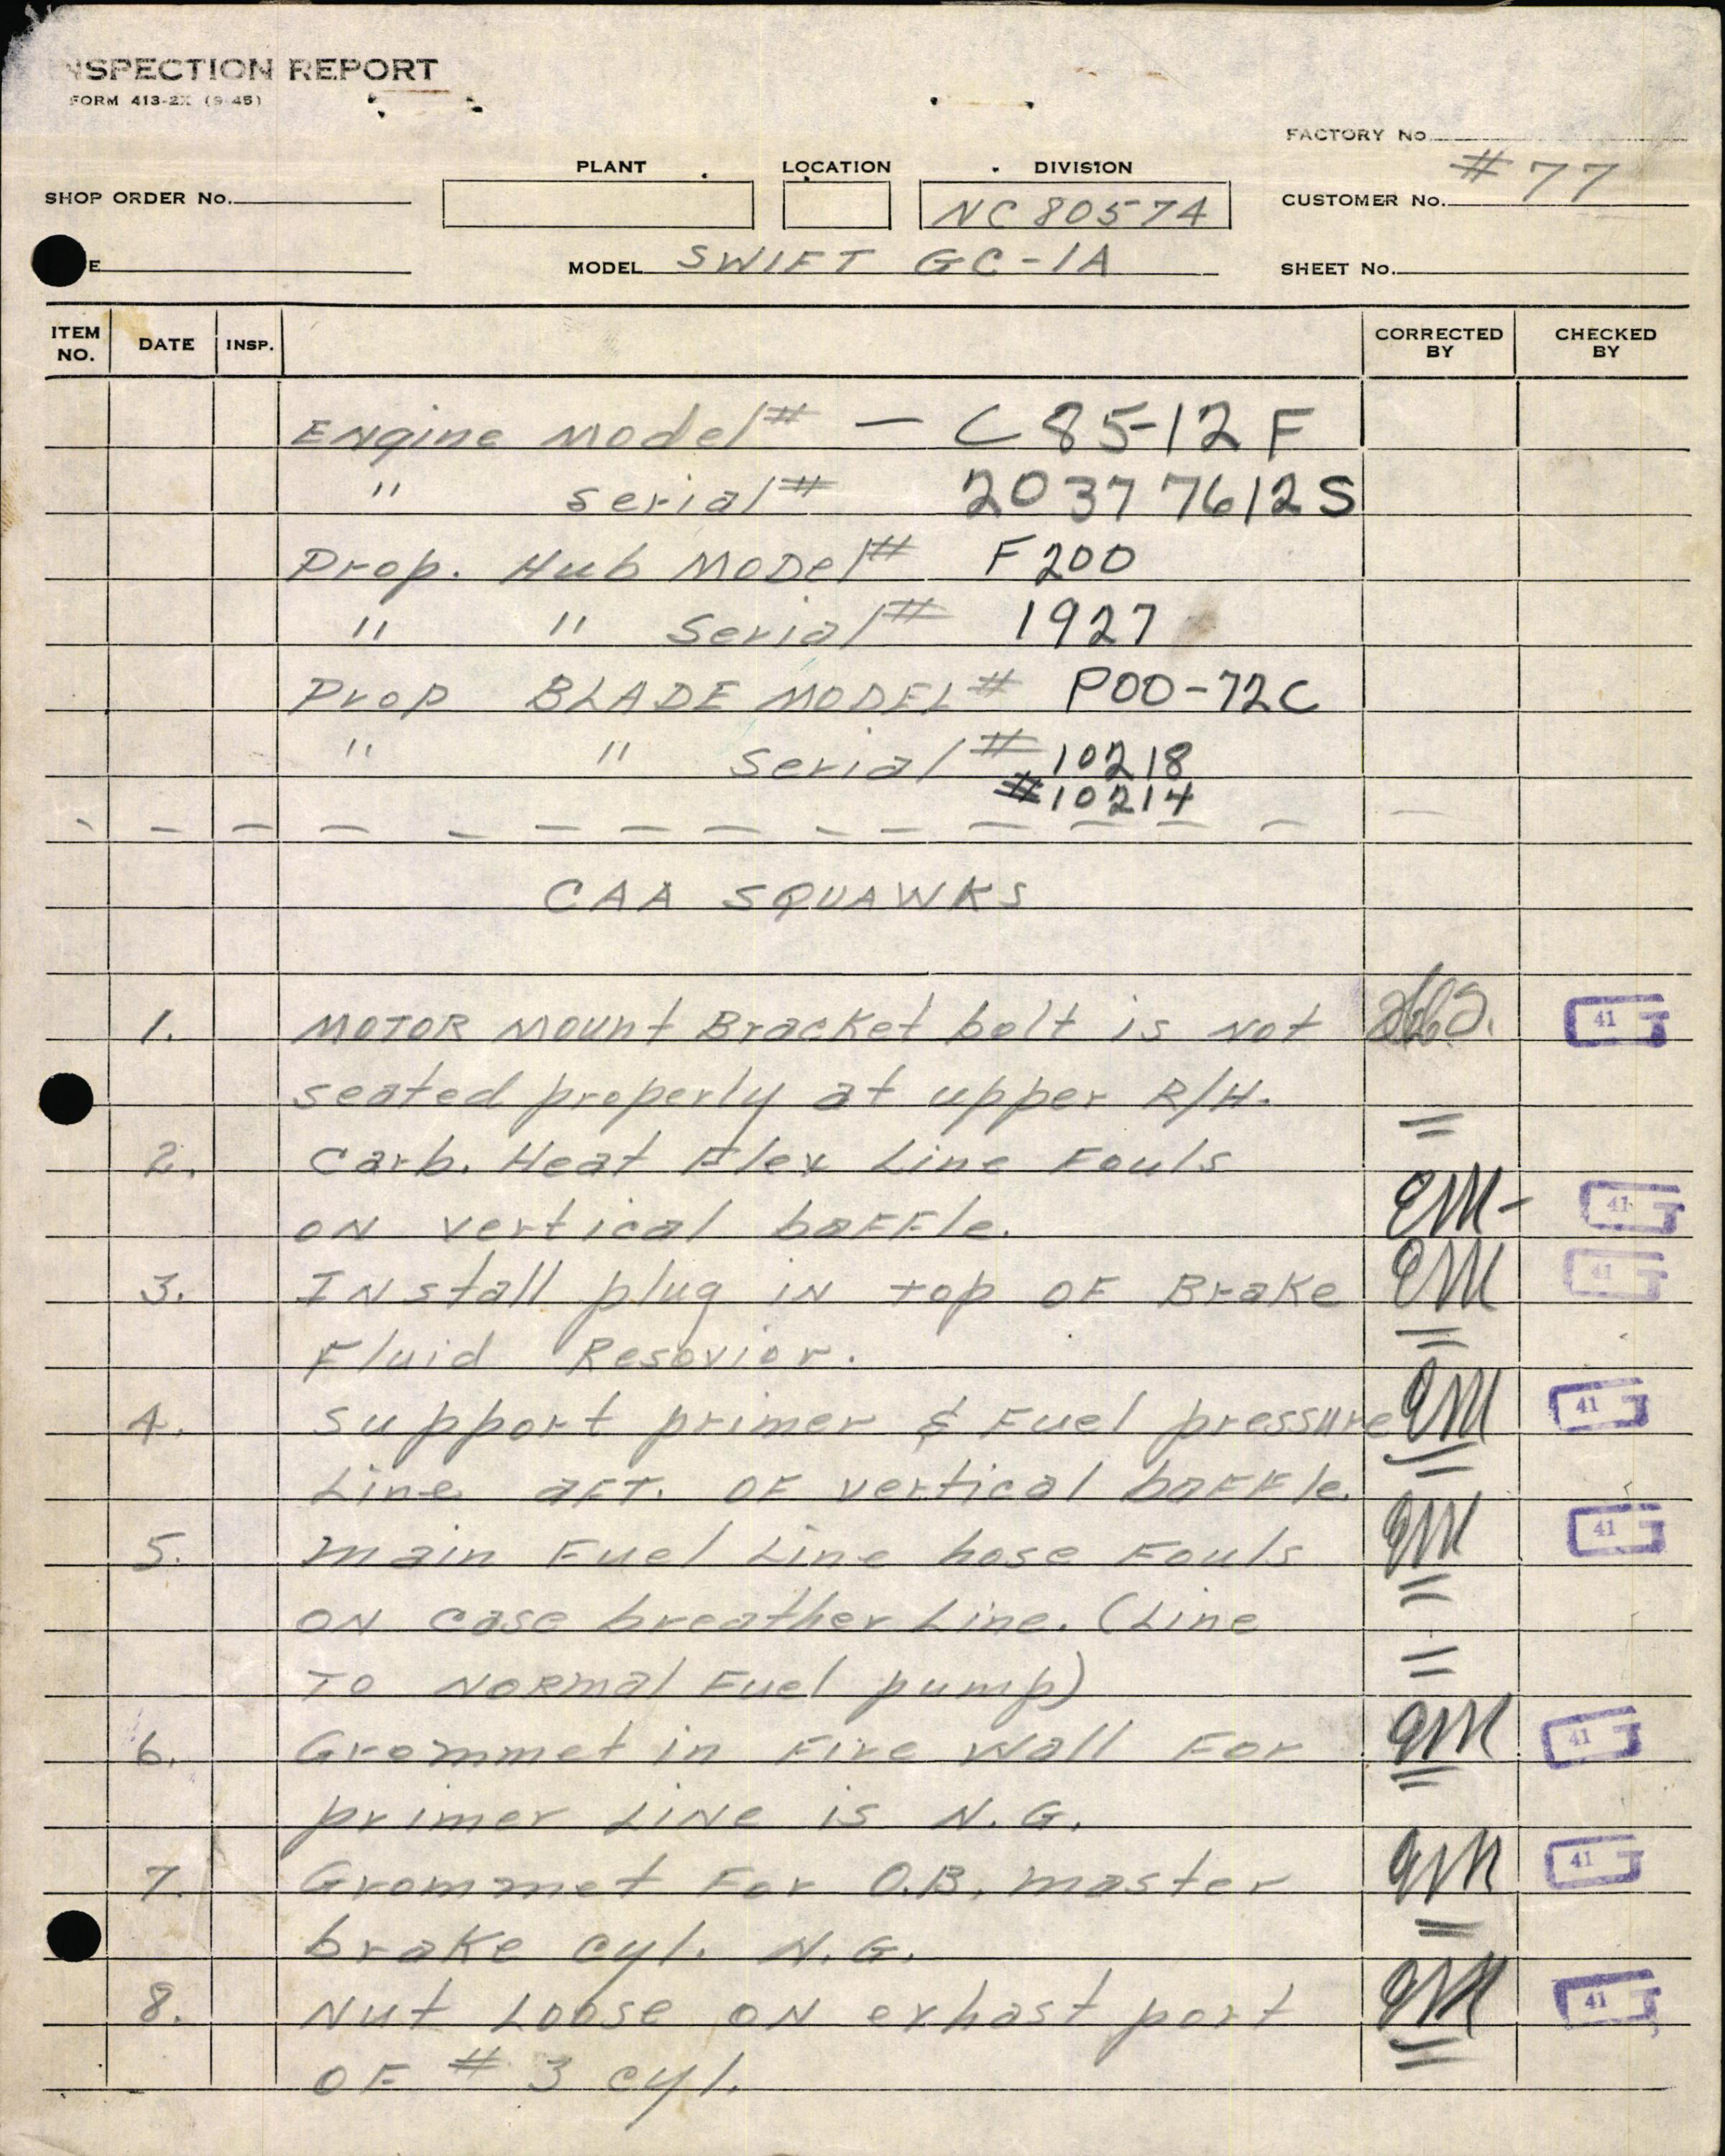 NSPECTION REPORT
FORM 413-2X (9-45)
FACTORY No.
PLANT LOCATION DIVISION
SHOP ORDER No. NC80574 CUSTOMER No. #77
E MODEL SWIFT GC-1A SHEET No.
ITEM NO. DATE INSP. CORRECTED BY CHECKED BY
Engine Model# — C85-12F
" Serial# 20377612S
Prop. Hub Model# F200
" " Serial# 1927
Prop BLADE MODEL# P00-72C
" " Serial# 10218
#10214
CAA SQUAWKS
1. MOTOR Mount Bracket bolt is Not 41
seated properly at upper R/H.
2. Carb. Heat Flex Line Fouls
ON vertical baFFle. 41
3. INstall plug in top OF Brake 41
Fluid Resovior.
4. Support primer & Fuel pressure 41
Line aFT. OF vertical baFFle.
5. Main Fuel Line hose Fouls 41
ON case breather Line. (Line
TO NORmal Fuel pump)
6. Grommet in Fire Wall For 41
primer LINe is N.G.
7. Grommet For O.B. master 41
brake cyl. N.G.
8. Nut Loose ON exhast port 41
OF #3 cyl.